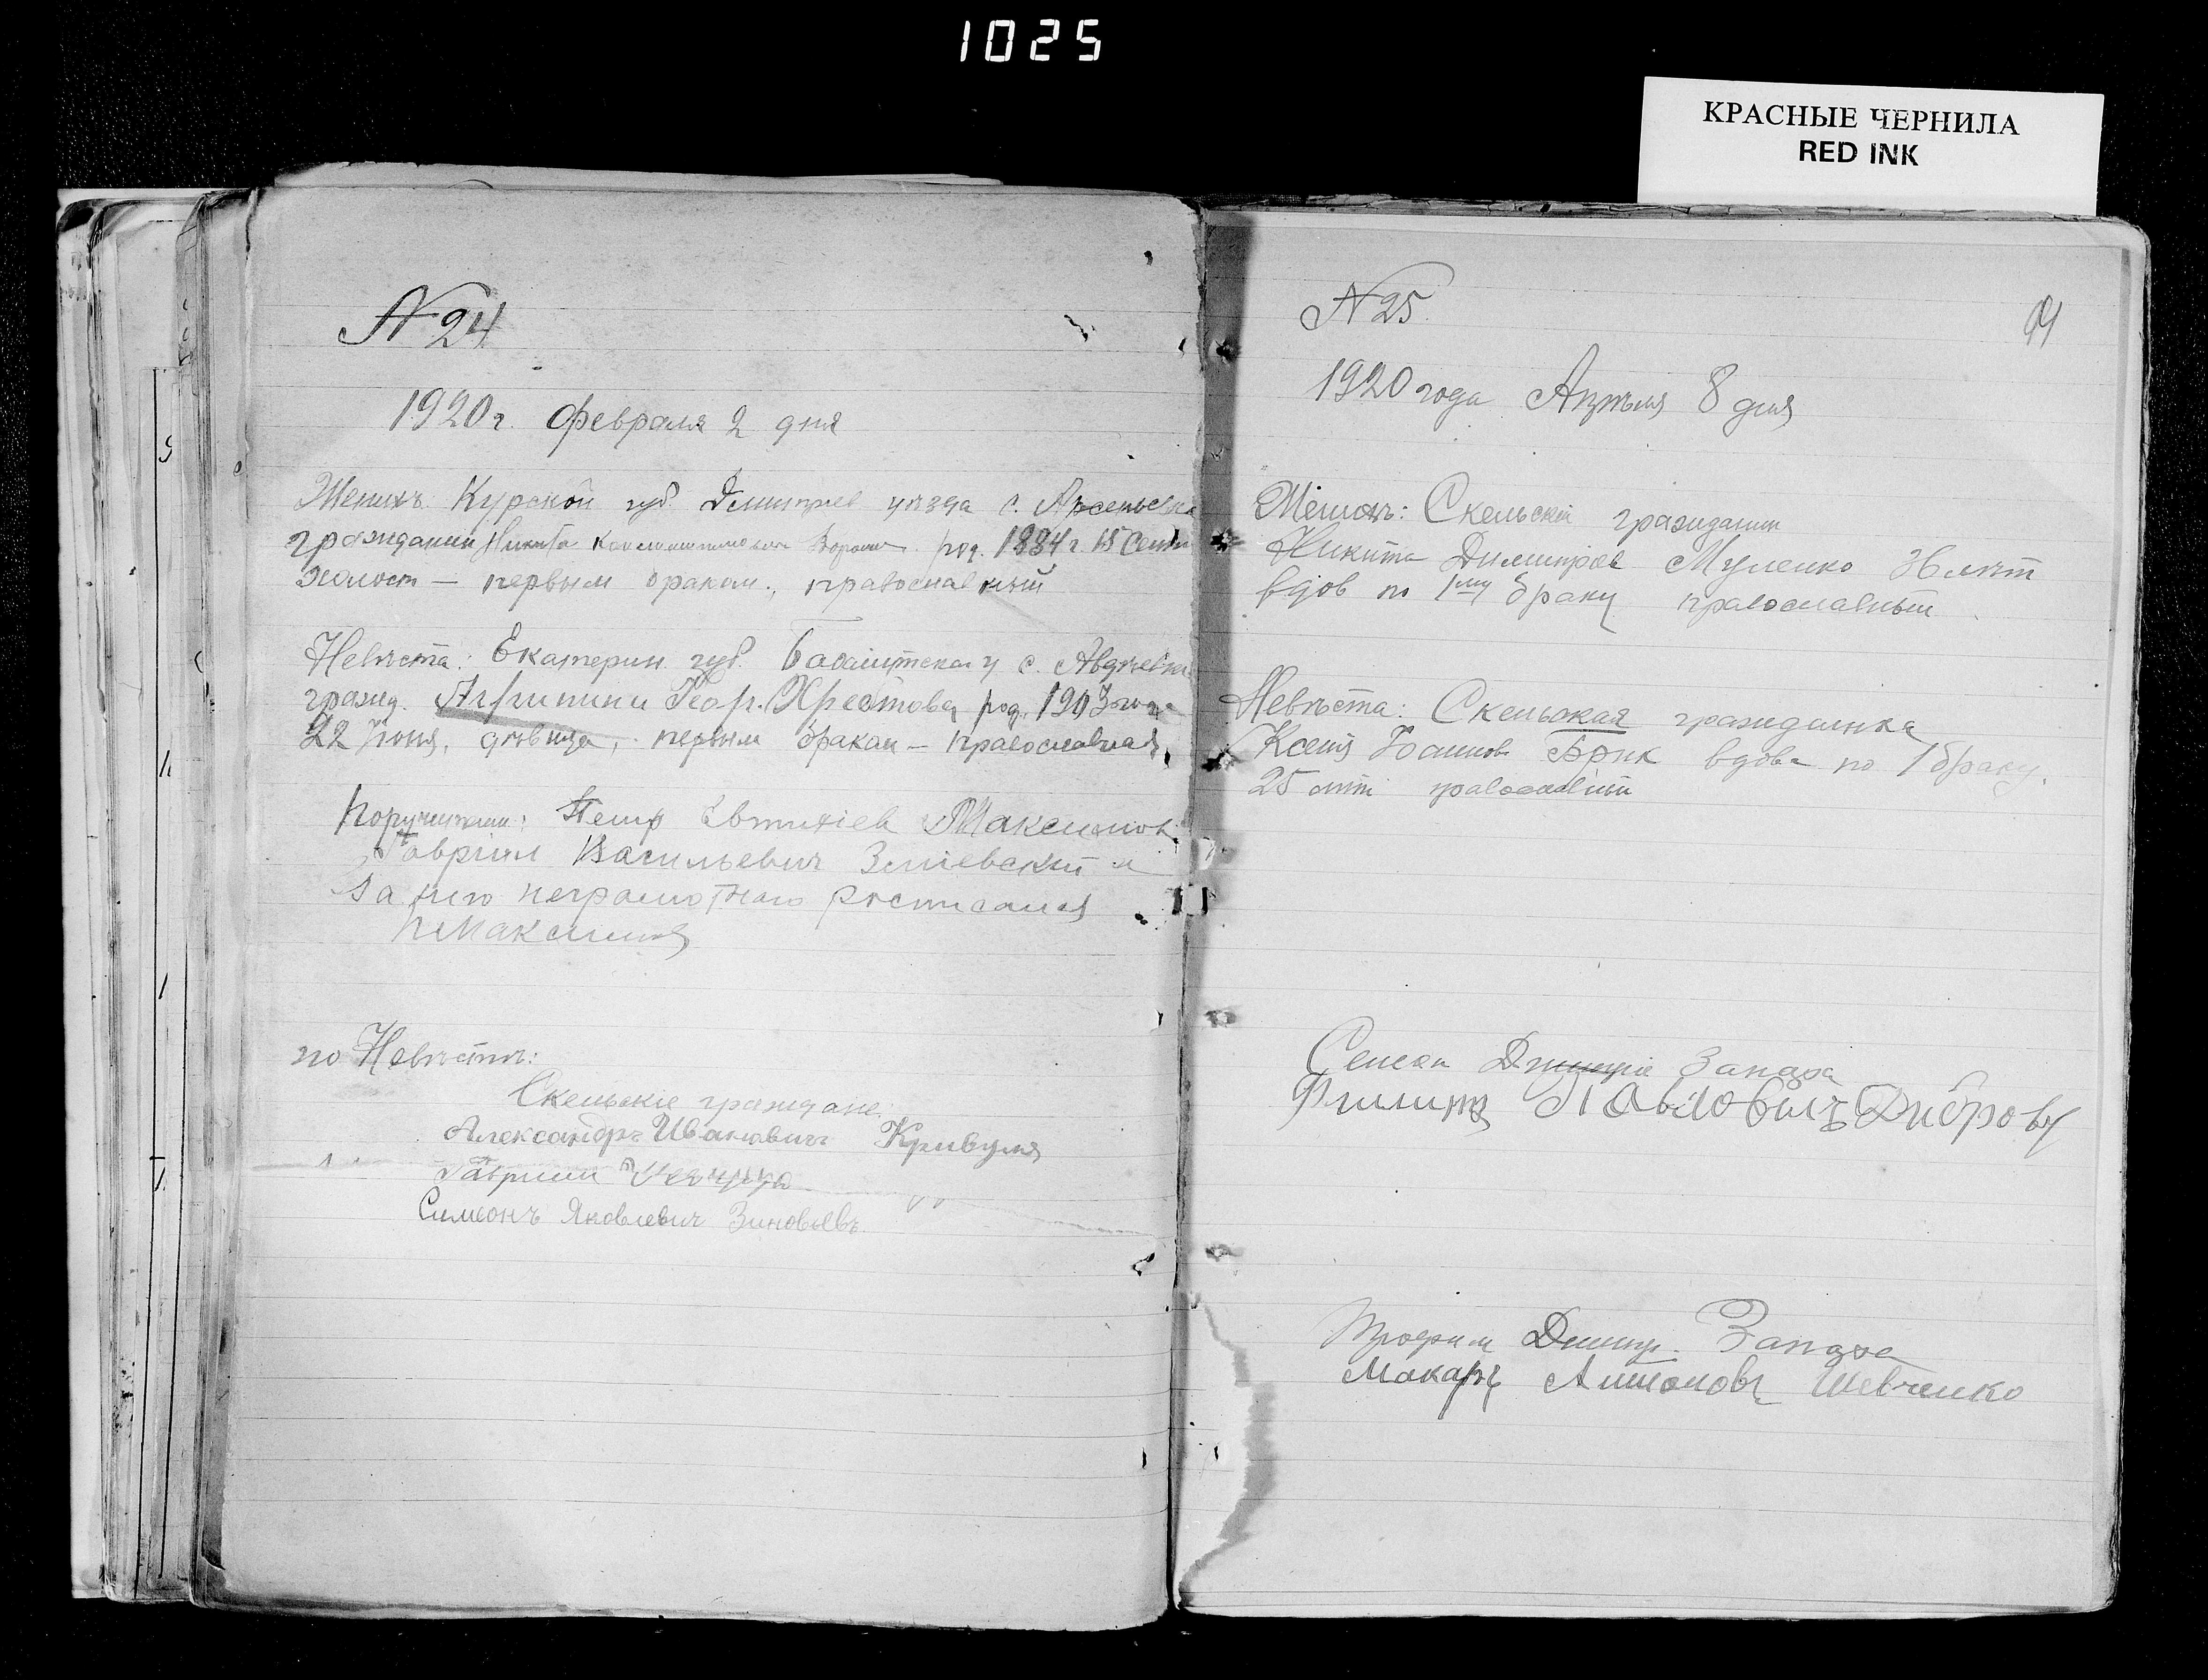 1025
КРАСНЫЕ ЧЕРНИЛА
RED INK
N 24
1920 г. Февраля 2 дня
Женихъ Курской губ. Дмитриев уѣзда с. Арсеньевка
гражданин Никита Константинович род. 1884 г. 15 Сент
холост — первым браком, православный
Невѣста: Екатерин. губ. с. Авдѣевка
гражд. Агрипини Геор. Хрестова род. 1903 года
22 Іюня, дѣвица, первым браком — православная
Поручители: Петр Евтихіев Максимов
Гавріил Васильевич Зміевскій и
за него неграмотного росписался
ПМаксимов
по Невѣстѣ:
Скельскіе граждане
Александръ Ивановичъ Кривуля
Гавриил
Симеонъ Яковлевич Зиновьевъ
N 25
1920 года Апрѣля 8 дня
Женихъ: Скельскій гражданин
Никита Димитріев Муленко лѣт
вдов по 1му браку православный
Невѣста: Скельская гражданка
Ксенія Іоаннов Брик вдова по 1 браку
25 лѣт православный
Дмитріе Запара
Филипъ Павловичъ Дибровy
Трофим Дмитр. Запара
Макаръ Антоновъ Шевченко